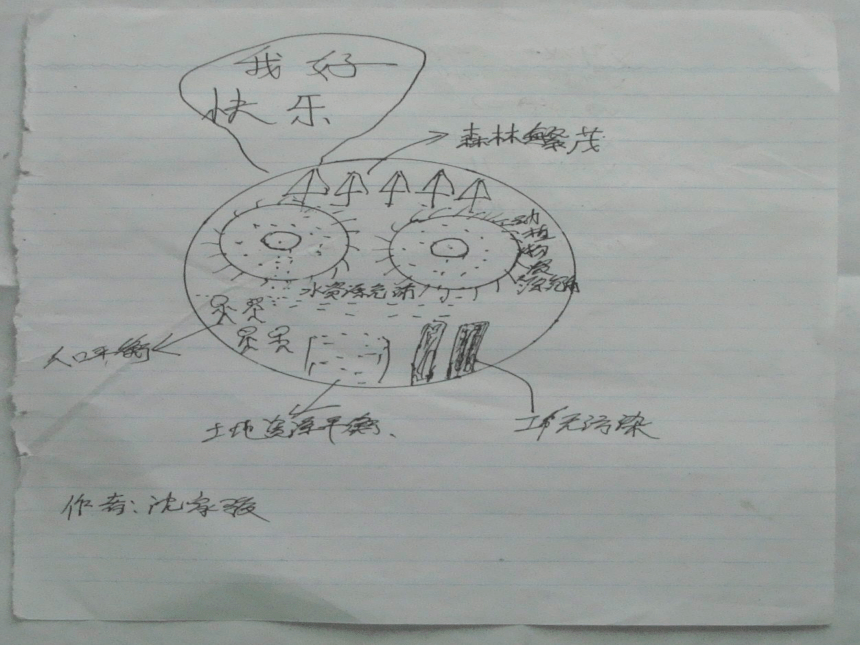 我好
快乐
森林繁茂
动植物资源充沛
水资源充沛
人口平衡
土地资源平衡、
工业无污染
作者:沈家骏